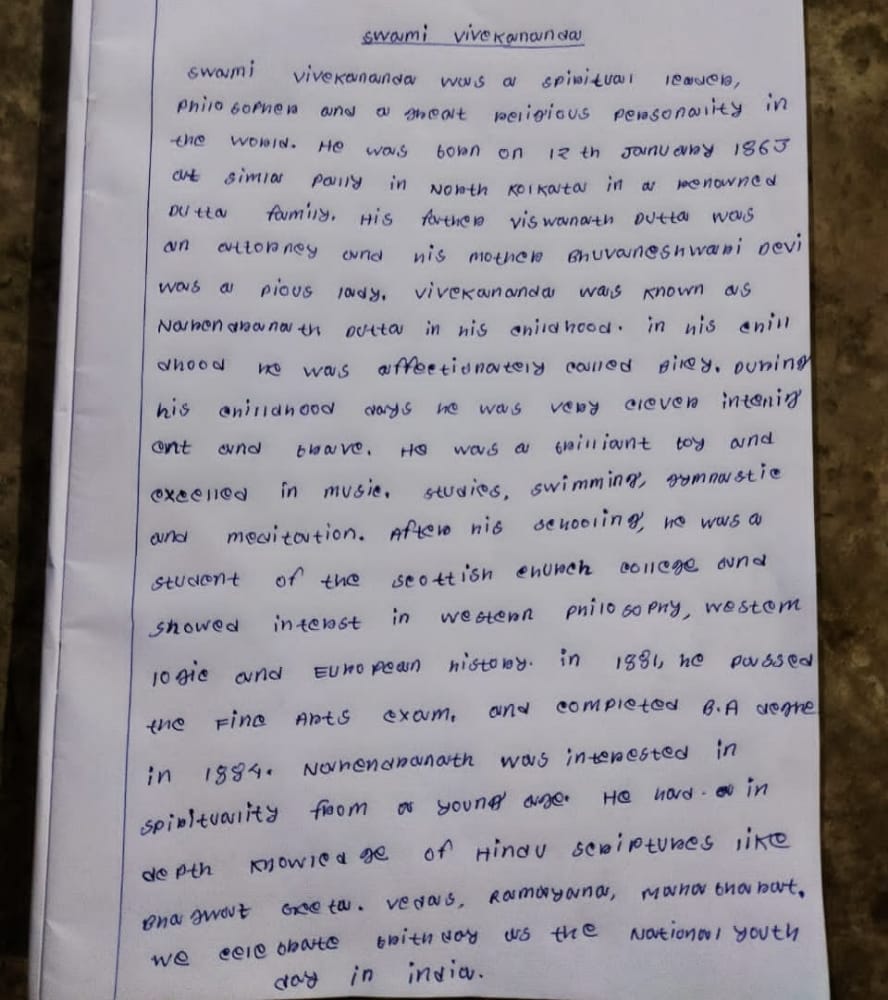 swami vivekananda
swami vivekananda was a spiritual leader,
philosopher and a great religious personality in
the world. He was born on 12 th January 1863
at simla pally in North Kolkata in a renowned
Dutta family. His father viswanath Dutta was
an attorney and his mother Bhuvaneshwari Devi
was a pious lady. vivekananda was known as
Narendranath Dutta in his childhood. in his chill
dhood he was affectionately called Biley. During
his chilldhood days he was very clever intenig
ent and brave. He was a brilliant boy and
excelled in music. studies, swimming, gymnastic
and meditation. After his schooling, he was a
student of the scottish church college and
showed interst in western philosophy, western
logic and European history. in 1881, he passed
the Fine Arts exam. and completed B.A degre
in 1884. Narendranath was interested in
spirituality from a young age. He had in
depth knowledge of Hindu scriptures like
Bhagwat Geeta. vedas, Ramayana, Mahabharat.
we celebrate brithday as the National youth
day in india.